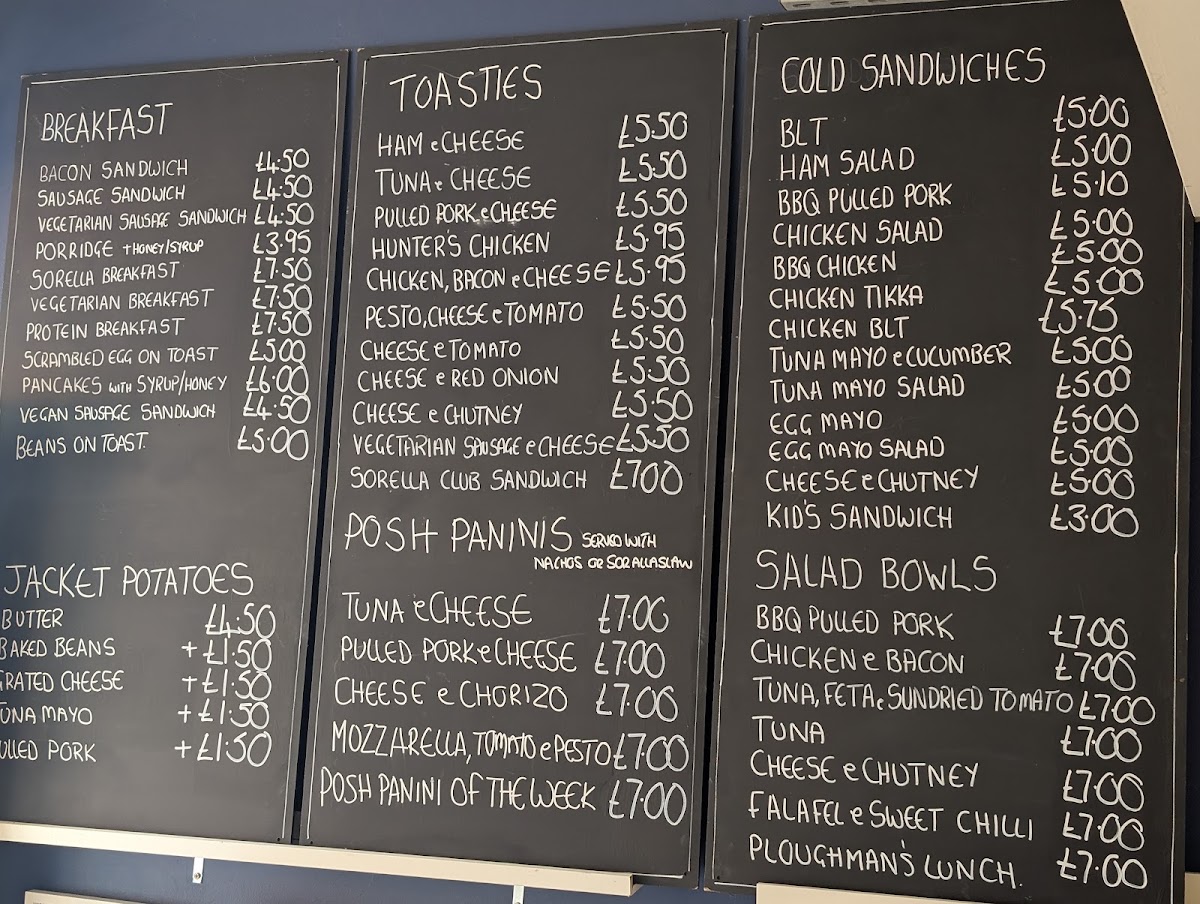 BREAKFAST
BACON SANDWICH £4.50
SAUSAGE SANDWICH £4.50
VEGETARIAN SAUSAGE SANDWICH £4.50
PORRIDGE + HONEY/SYRUP £3.95
SORELLA BREAKFAST £7.50
VEGETARIAN BREAKFAST £7.50
PROTEIN BREAKFAST £7.50
SCRAMBLED EGG ON TOAST £5.00
PANCAKES WITH SYRUP/HONEY £6.00
VEGAN SAUSAGE SANDWICH £4.50
BEANS ON TOAST. £5.00
JACKET POTATOES
BUTTER £4.50
BAKED BEANS +£1.50
GRATED CHEESE +£1.50
TUNA MAYO +£1.50
PULLED PORK +£1.50
TOASTIES
HAM e CHEESE £5.50
TUNA e CHEESE £5.50
PULLED PORK e CHEESE £5.50
HUNTER'S CHICKEN £5.95
CHICKEN, BACON e CHEESE £5.95
PESTO, CHEESE e TOMATO £5.50
CHEESE e TOMATO £5.50
CHEESE e RED ONION £5.50
CHEESE e CHUTNEY £5.50
VEGETARIAN SAUSAGE e CHEESE £5.50
SORELLA CLUB SANDWICH £7.00
POSH PANINIS SERVED WITH
NACHOS OR SORALLASLAW
TUNA e CHEESE £7.00
PULLED PORK e CHEESE £7.00
CHEESE e CHORIZO £7.00
MOZZARELLA, TOMATO e PESTO £7.00
POSH PANINI OF THE WEEK £7.00
COLD SANDWICHES
BLT £5.00
HAM SALAD £5.00
BBQ PULLED PORK £5.10
CHICKEN SALAD £5.00
BBQ CHICKEN £5.00
CHICKEN TIKKA £5.00
CHICKEN BLT £5.75
TUNA MAYO e CUCUMBER £5.00
TUNA MAYO SALAD £5.00
EGG MAYO £5.00
EGG MAYO SALAD £5.00
CHEESE e CHUTNEY £5.00
KID'S SANDWICH £3.00
SALAD BOWLS
BBQ PULLED PORK £7.00
CHICKEN e BACON £7.00
TUNA, FETA e SUNDRIED TOMATO £7.00
TUNA £7.00
CHEESE e CHUTNEY £7.00
FALAFEL e SWEET CHILLI £7.00
PLOUGHMAN'S LUNCH. £7.00